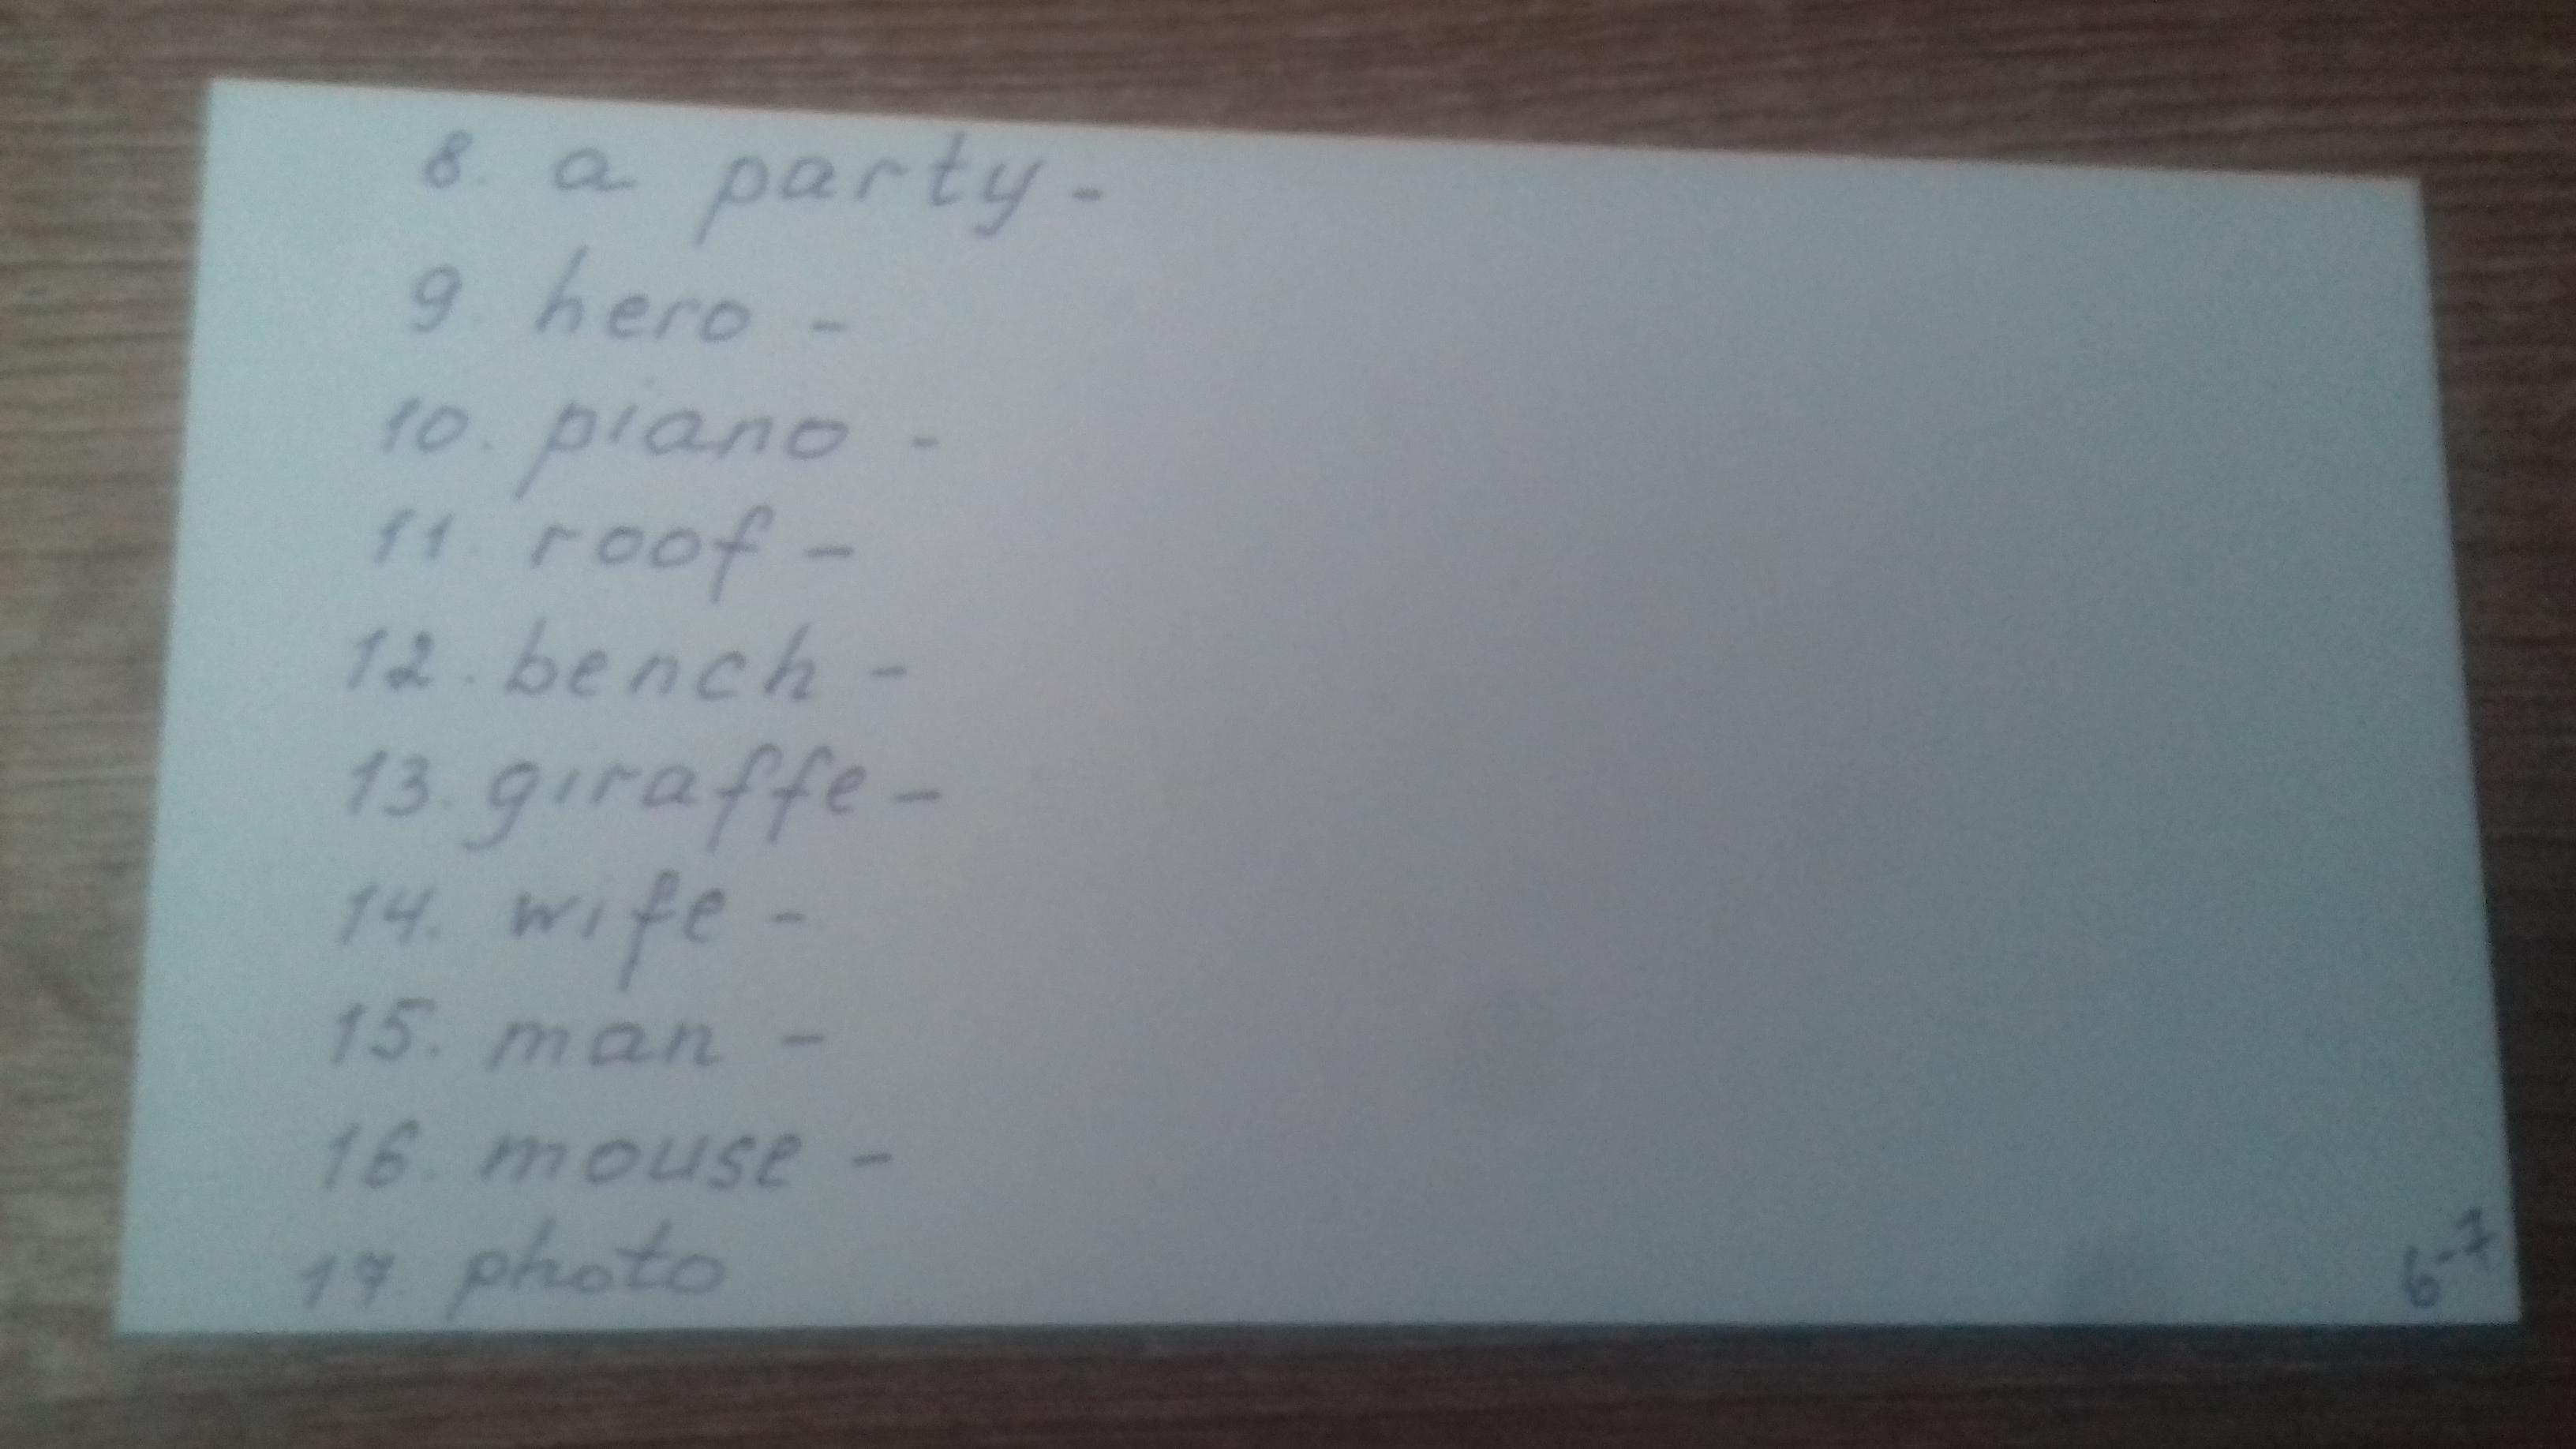 8. a party -
9. hero -
10. piano -
11. roof -
12. bench -
13. giraffe -
14. wife -
15. man -
16. mouse -
17. photo
6-7